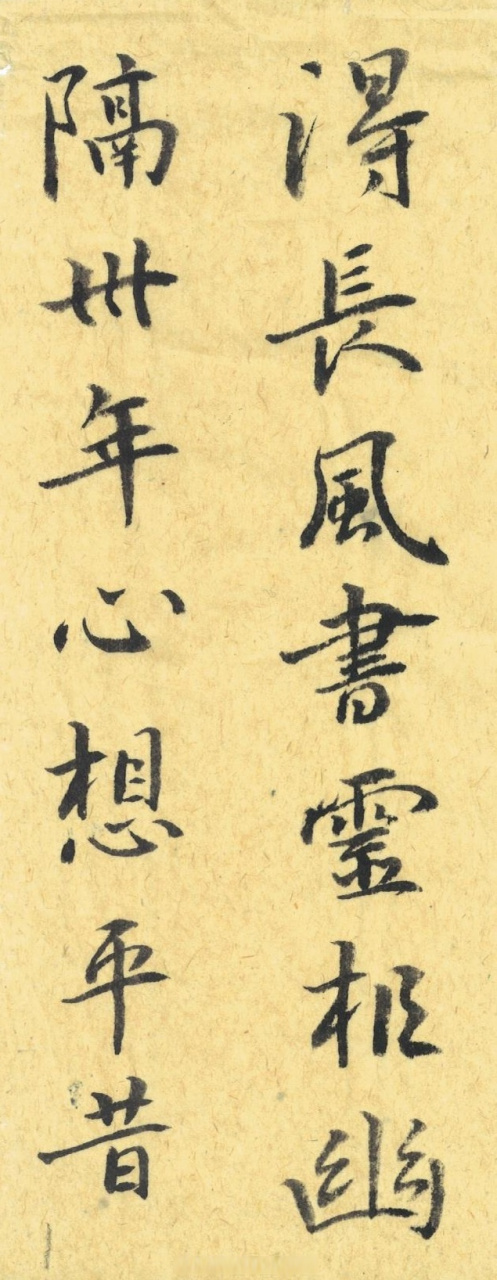 得長風書靈柩幽
隔卅年心想平昔